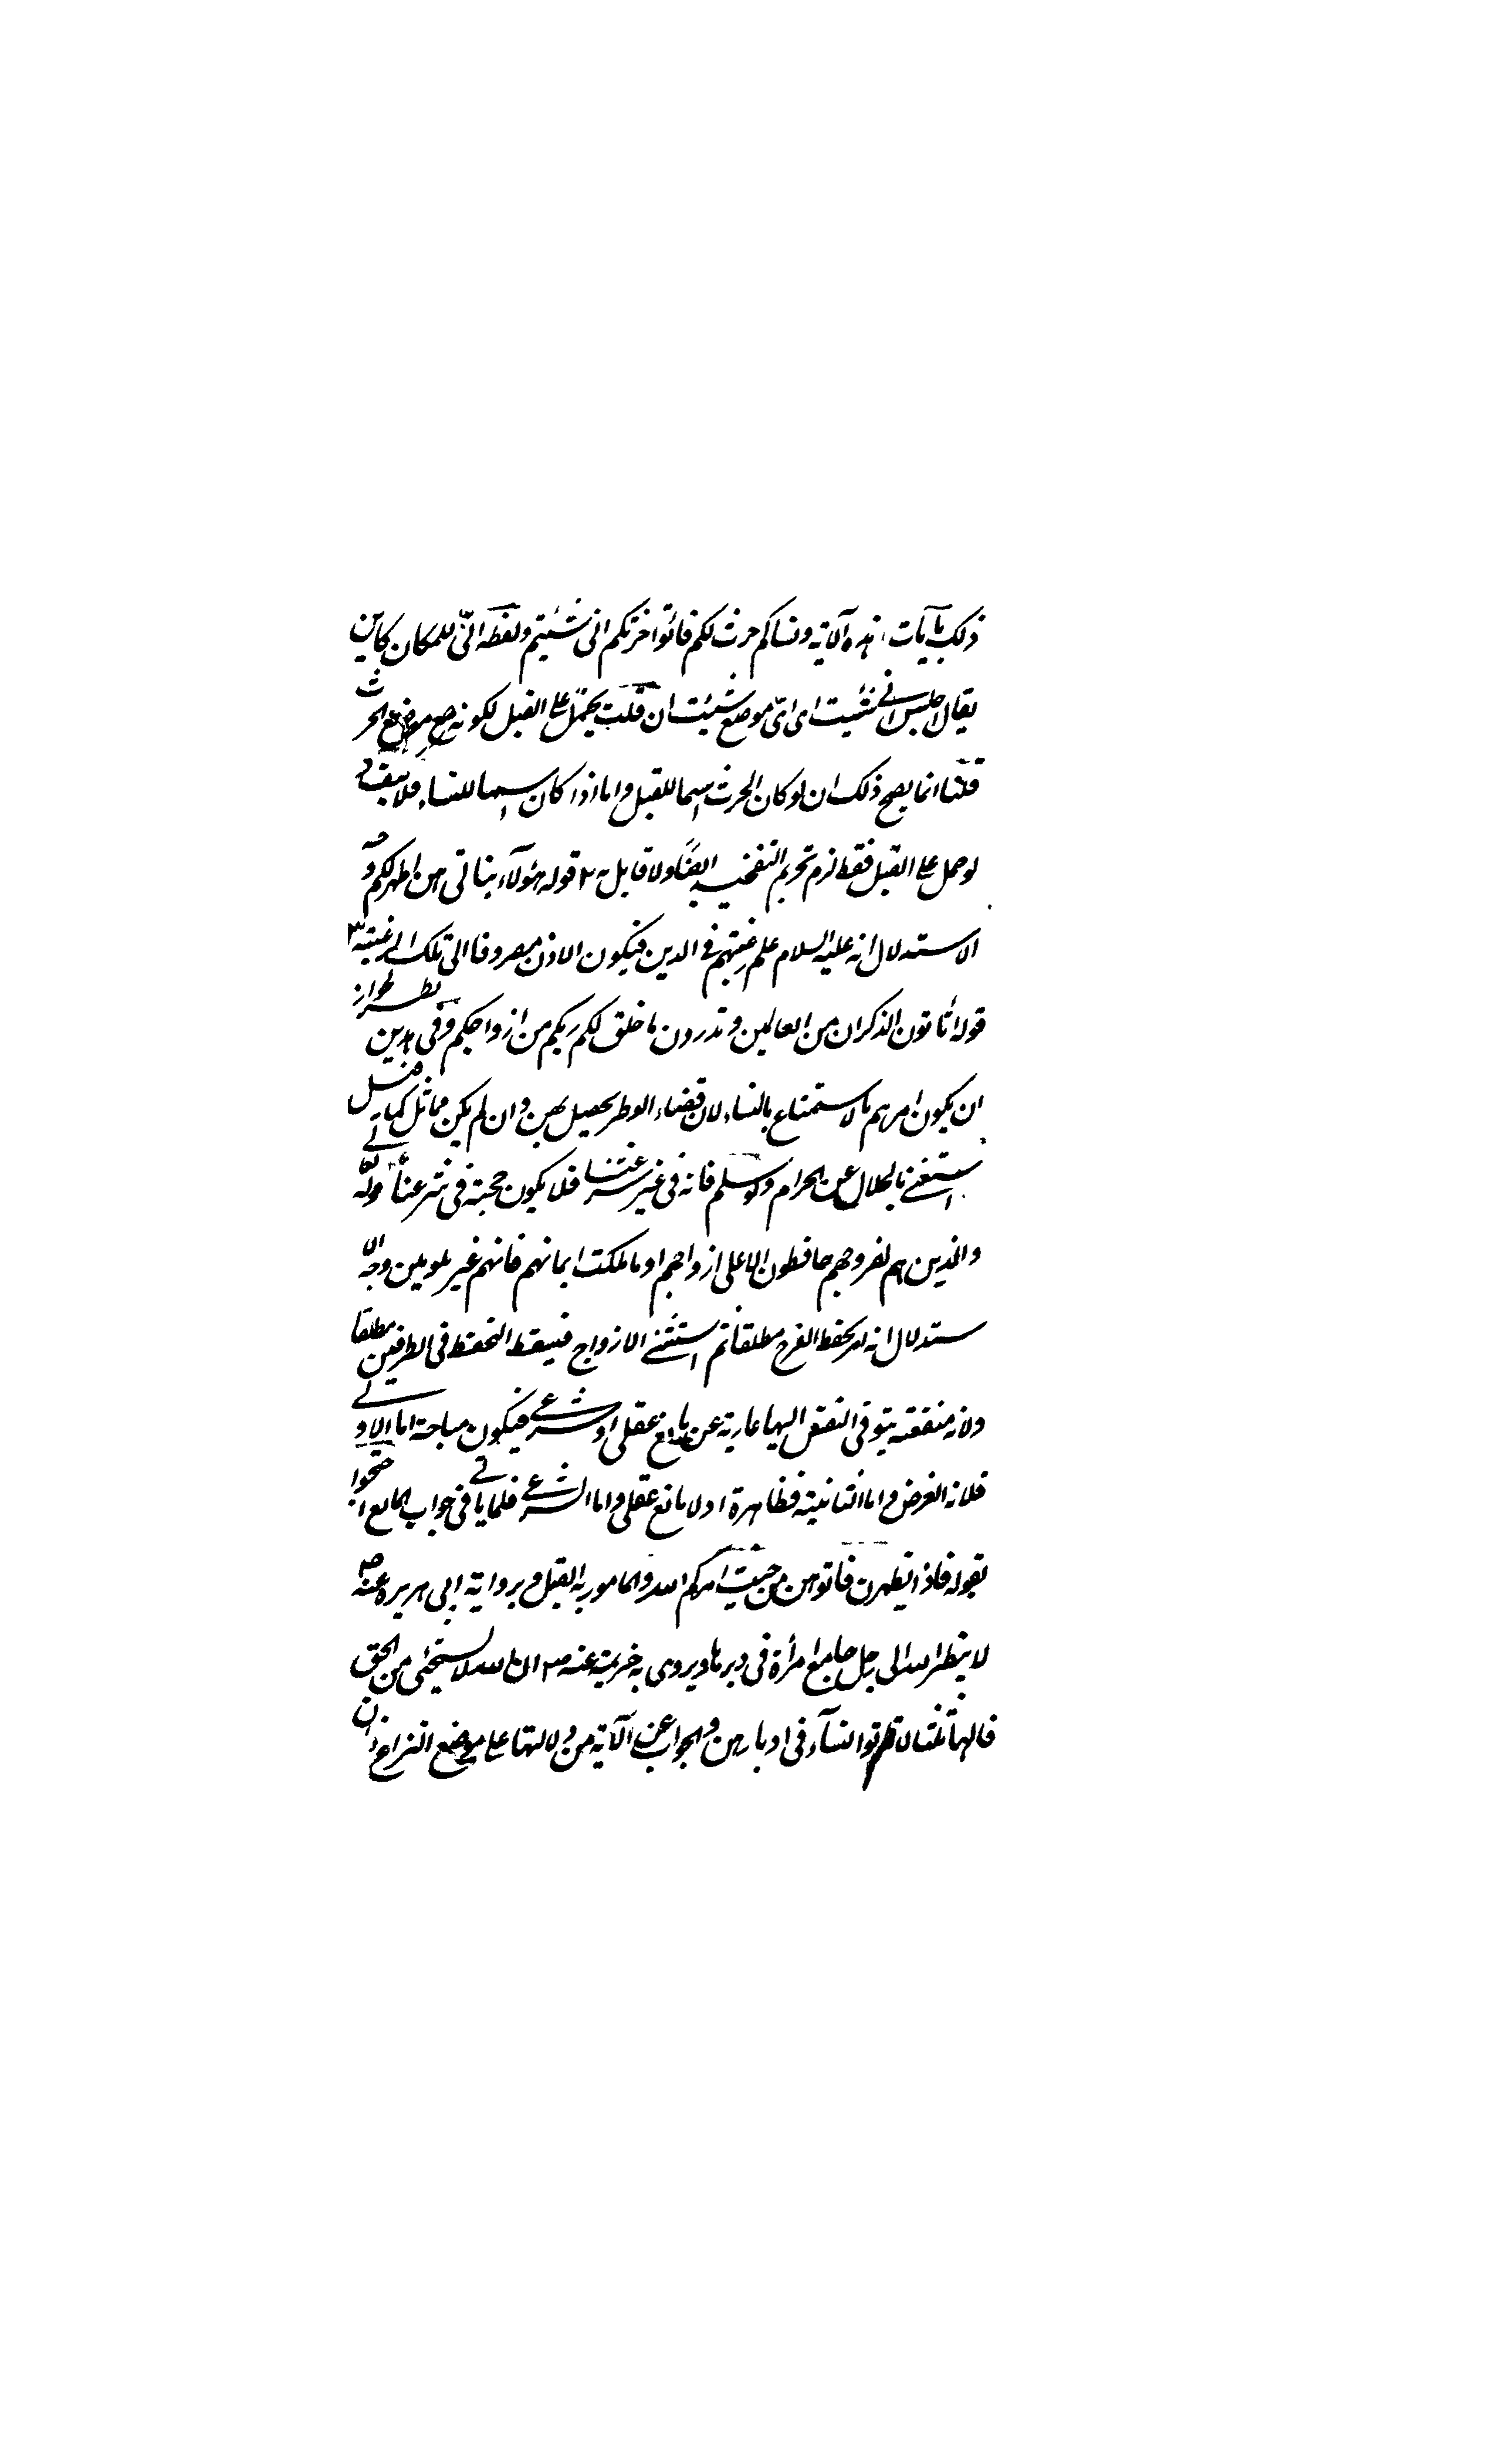 ذلك بآيات ا هذه الآية ونساكم حرث لكم فاتوا حرثكم انى شئتم ولفظة انّى للمكان كاين
يقال اجلس انى شئت اى اىّ موضع شئت ان قلت يحمل على القبل لكونه موضع الحرث
قلنا انما يصح ذلك ان لو كان الحرث اسما للقبل واما اذا كان اسما للنساء فلا
لو حمل على القبل فقط لزم تحريم التفخيذ ايضًا ولا قابل به ٢ قوله هؤلآء بناتى هن اطهر لكم وجه
الاستدلال انه عليه السلام علم رغبتهم فى الدبر فيكون الاذن مصروفا الى تلك الرغبة ٣
قوله أتاتون الذكران من العالمين وتذرون ما خلق لكم ربكم من ازواجكم وفى هذين نظر لجواز
ان يكون امرهم بالاستمتاع بالنساء لان قضاء الوطر يحصل بهن وان لم يكن مماثل كما يقال
استغنى بالحلال عن الحرام ولو سلم فانه فى غير شرعتنا فلا يكون حجة فى شرعنا ٤ قوله تعالى
والذين هم لفروجهم حافظون الا على ازواجهم او ما ملكت ايمانهم فانهم غير ملومين وجه الا
ستدلال انه امر بحفظ الفرج مطلقا ثم استثنى الازواج فيسقط التحفظ فى الطرفين مطلقا
ولانه منفعة يتوق النفس اليها عارية عن مانع عقلى او شرعى فيكون مباحة اما الاولى
فلانه الغرض واما الثانية فظاهرة اذ لا مانع عقلى واما الشرعى فلما ياتى فى جواب المانع احتجوا
بقوله فاذا تطهرن فاتوهن من حيث امركم الله والمامور به القبل وبرواية ابى هريرة عنه ص
لا ينظر الله الى رجل جامع امرأة فى دبرها وبروى به خزيمة عنه ص ان الله لا يستحيى من الحق
قالها ثلثا لا تاتوا النسآء فى ادبارهن والجواب عن الآية من دلالتها على موضع النزاع ان